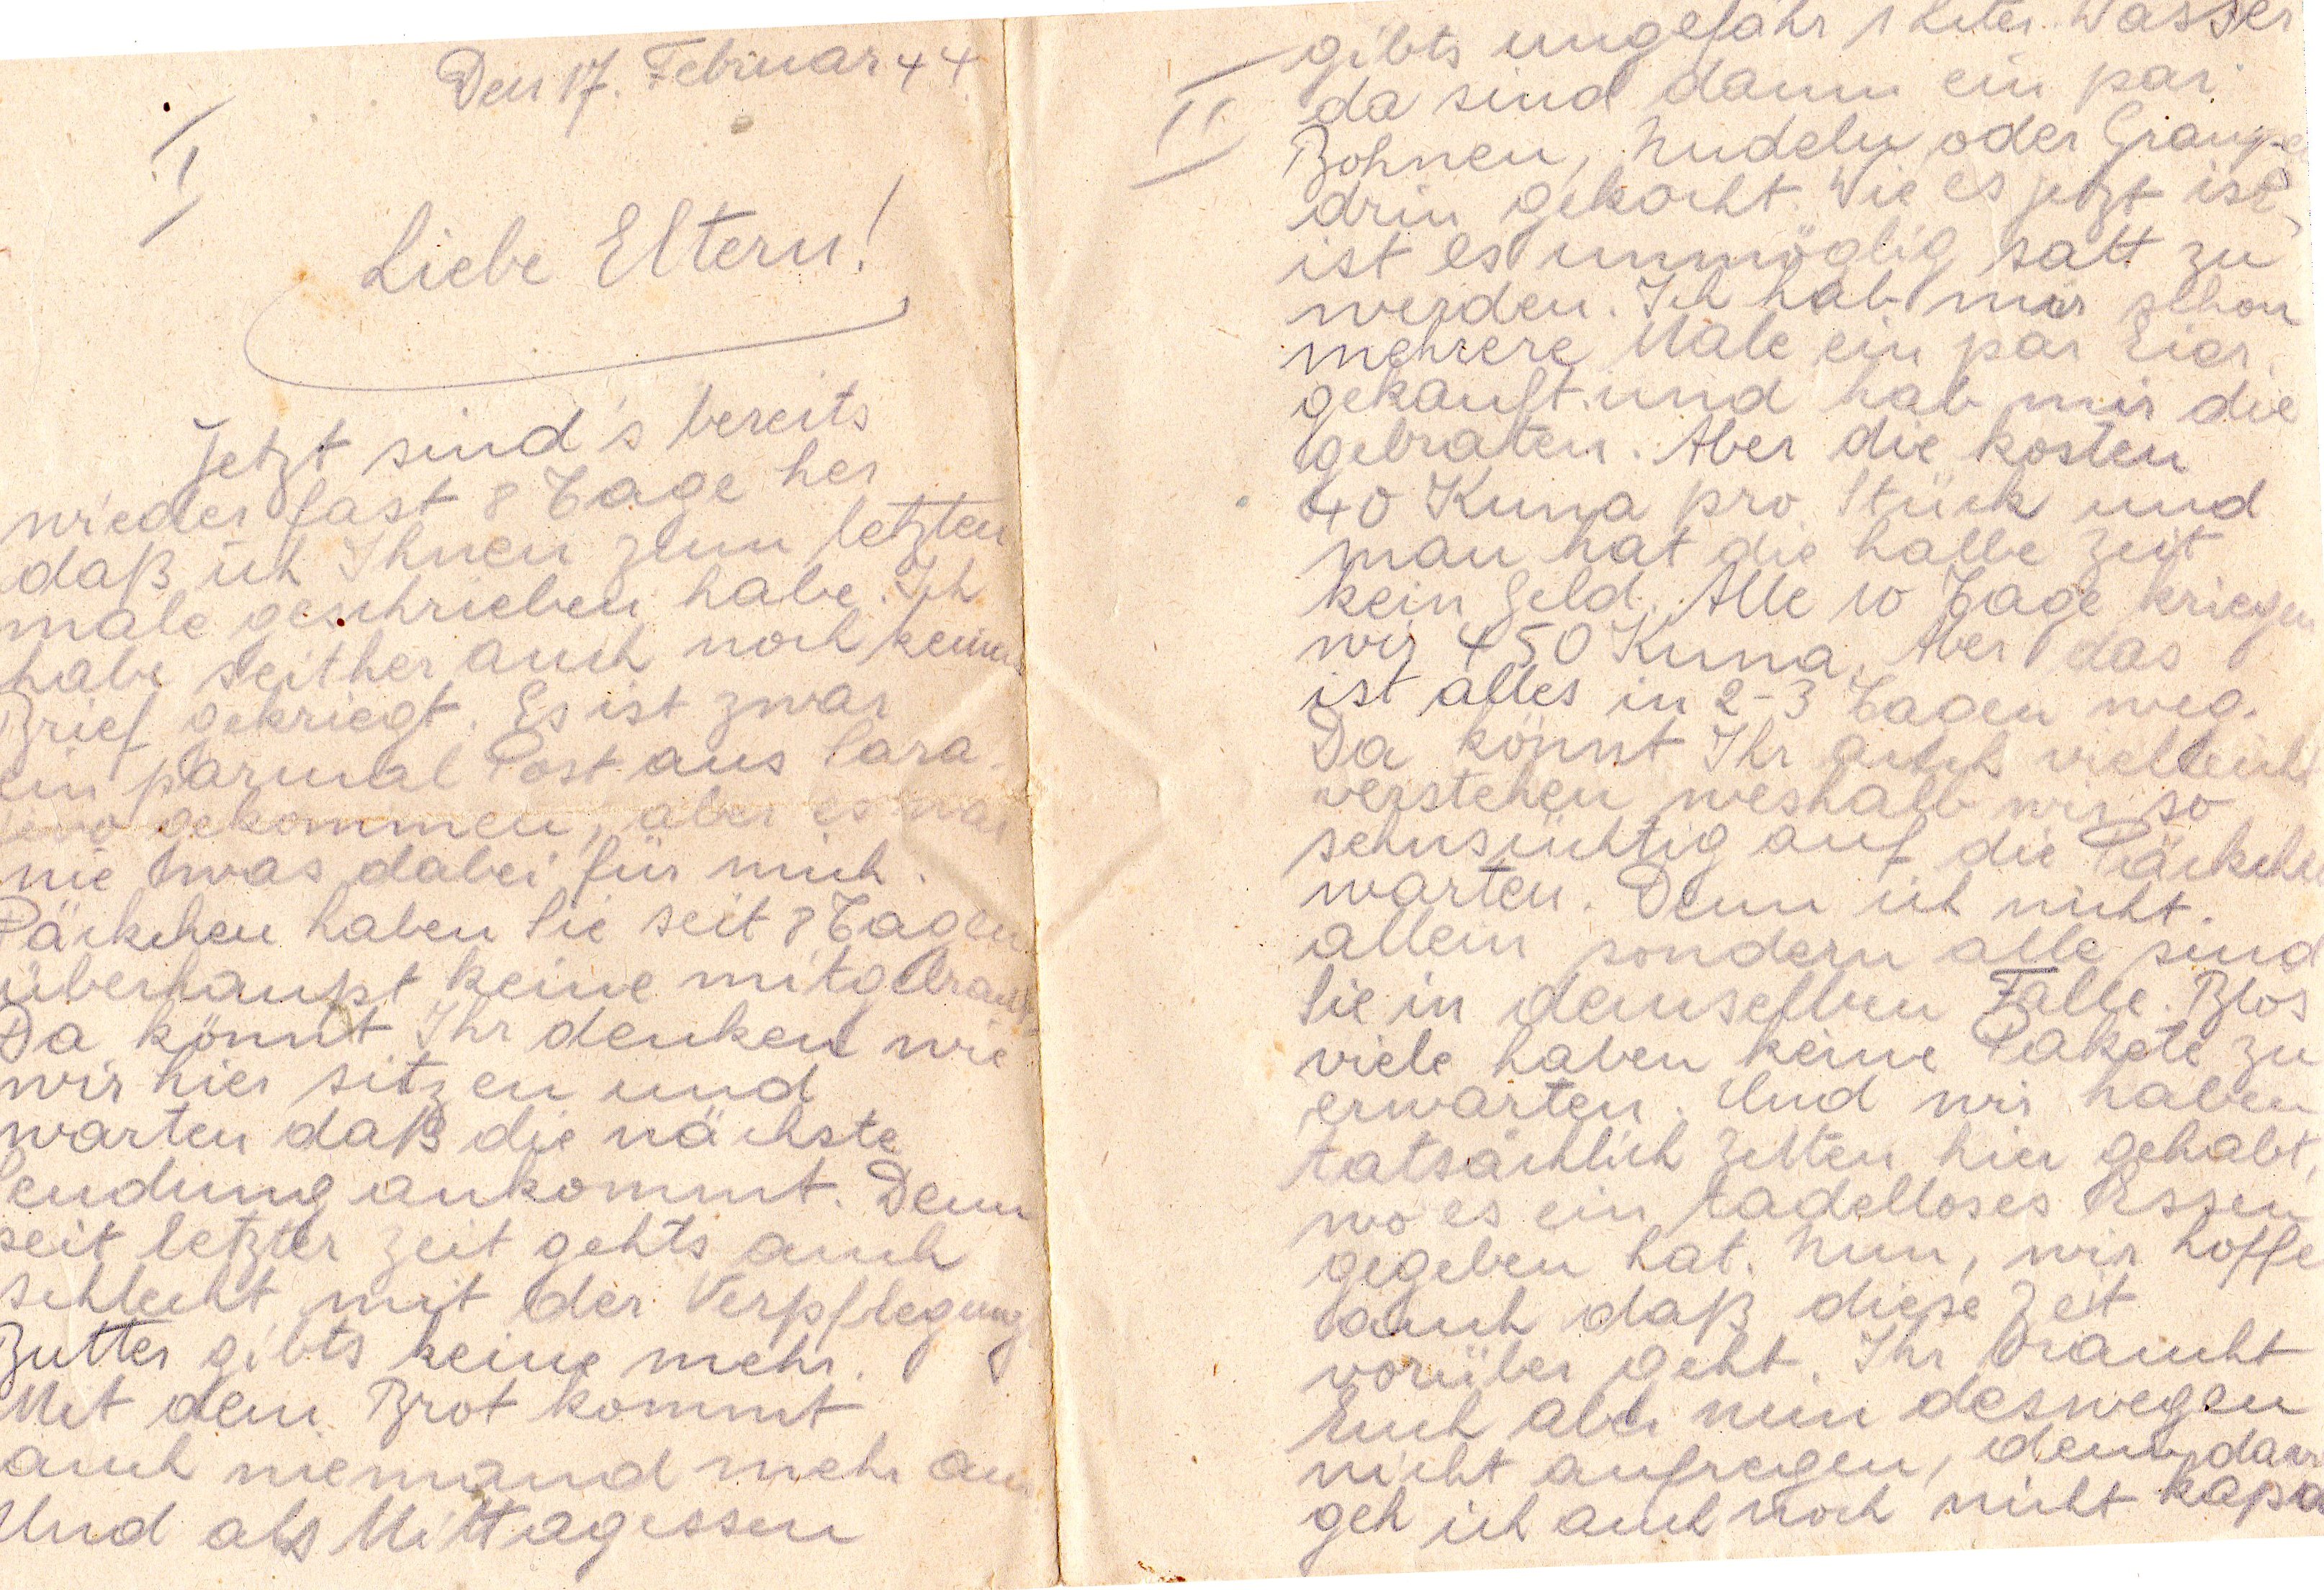 Den 17. Februar 44.
I
Liebe Eltern!
Jetzt sind's bereits
wieder fast 8 Tage her
daß ich Ihnen zum letzten
male geschrieben habe. Ich
habe seither auch noch keinen
Brief gekriegt. Es ist zwar
ein parmal Post aus Sara-
jevo gekommen, aber es war
nie etwas dabei für mich.
Päckchen haben Sie seit 8 Tagen
überhaupt keine mitgebracht
Da könnt Ihr denken wie
wir hier sitzen und
warten daß die nächste
Sendung ankommt. Denn
seit letzter Zeit gehts auch
schlecht mit der Verpflegung
Butter gibts keine mehr.
Mit dem Brot kommt
auch niemand mehr aus
Und als Mittagessen
II
gibts ungefähr 1 Liter Wasser
da sind dann ein par
Bohnen, Nudeln oder Graupen
drin gekocht. Wie es jetzt ist,
ist es unmöglig satt zu
werden. Ich hab mir schon
mehrere Male ein par Eier
gekauft und hab mir die
gebraten. Aber die kosten
40 Kuna pro Stück und
man hat die halbe Zeit
kein Geld. Alle 10 Tage kriegen
wir 450 Kuna. Aber das
ist alles in 2-3 Tagen weg.
Da könnt Ihr auch vielleicht
verstehen weshalb wir so
sehnsüchtig auf die Päckchen
warten. Denn ich nicht
allein sondern alle sind
Sie in demselben Falle. Blos
viele haben keine Pakete zu
erwarten. Und wir haben
tatsächlich Zeiten hier gehabt,
wo es ein tadelloses Essen
gegeben hat. Nun, wir hoffe
auch daß diese Zeit
vorüber geht. Ihr braucht
Euch aber nun deswegen
nicht aufregen, denn
geh ich auch noch nicht